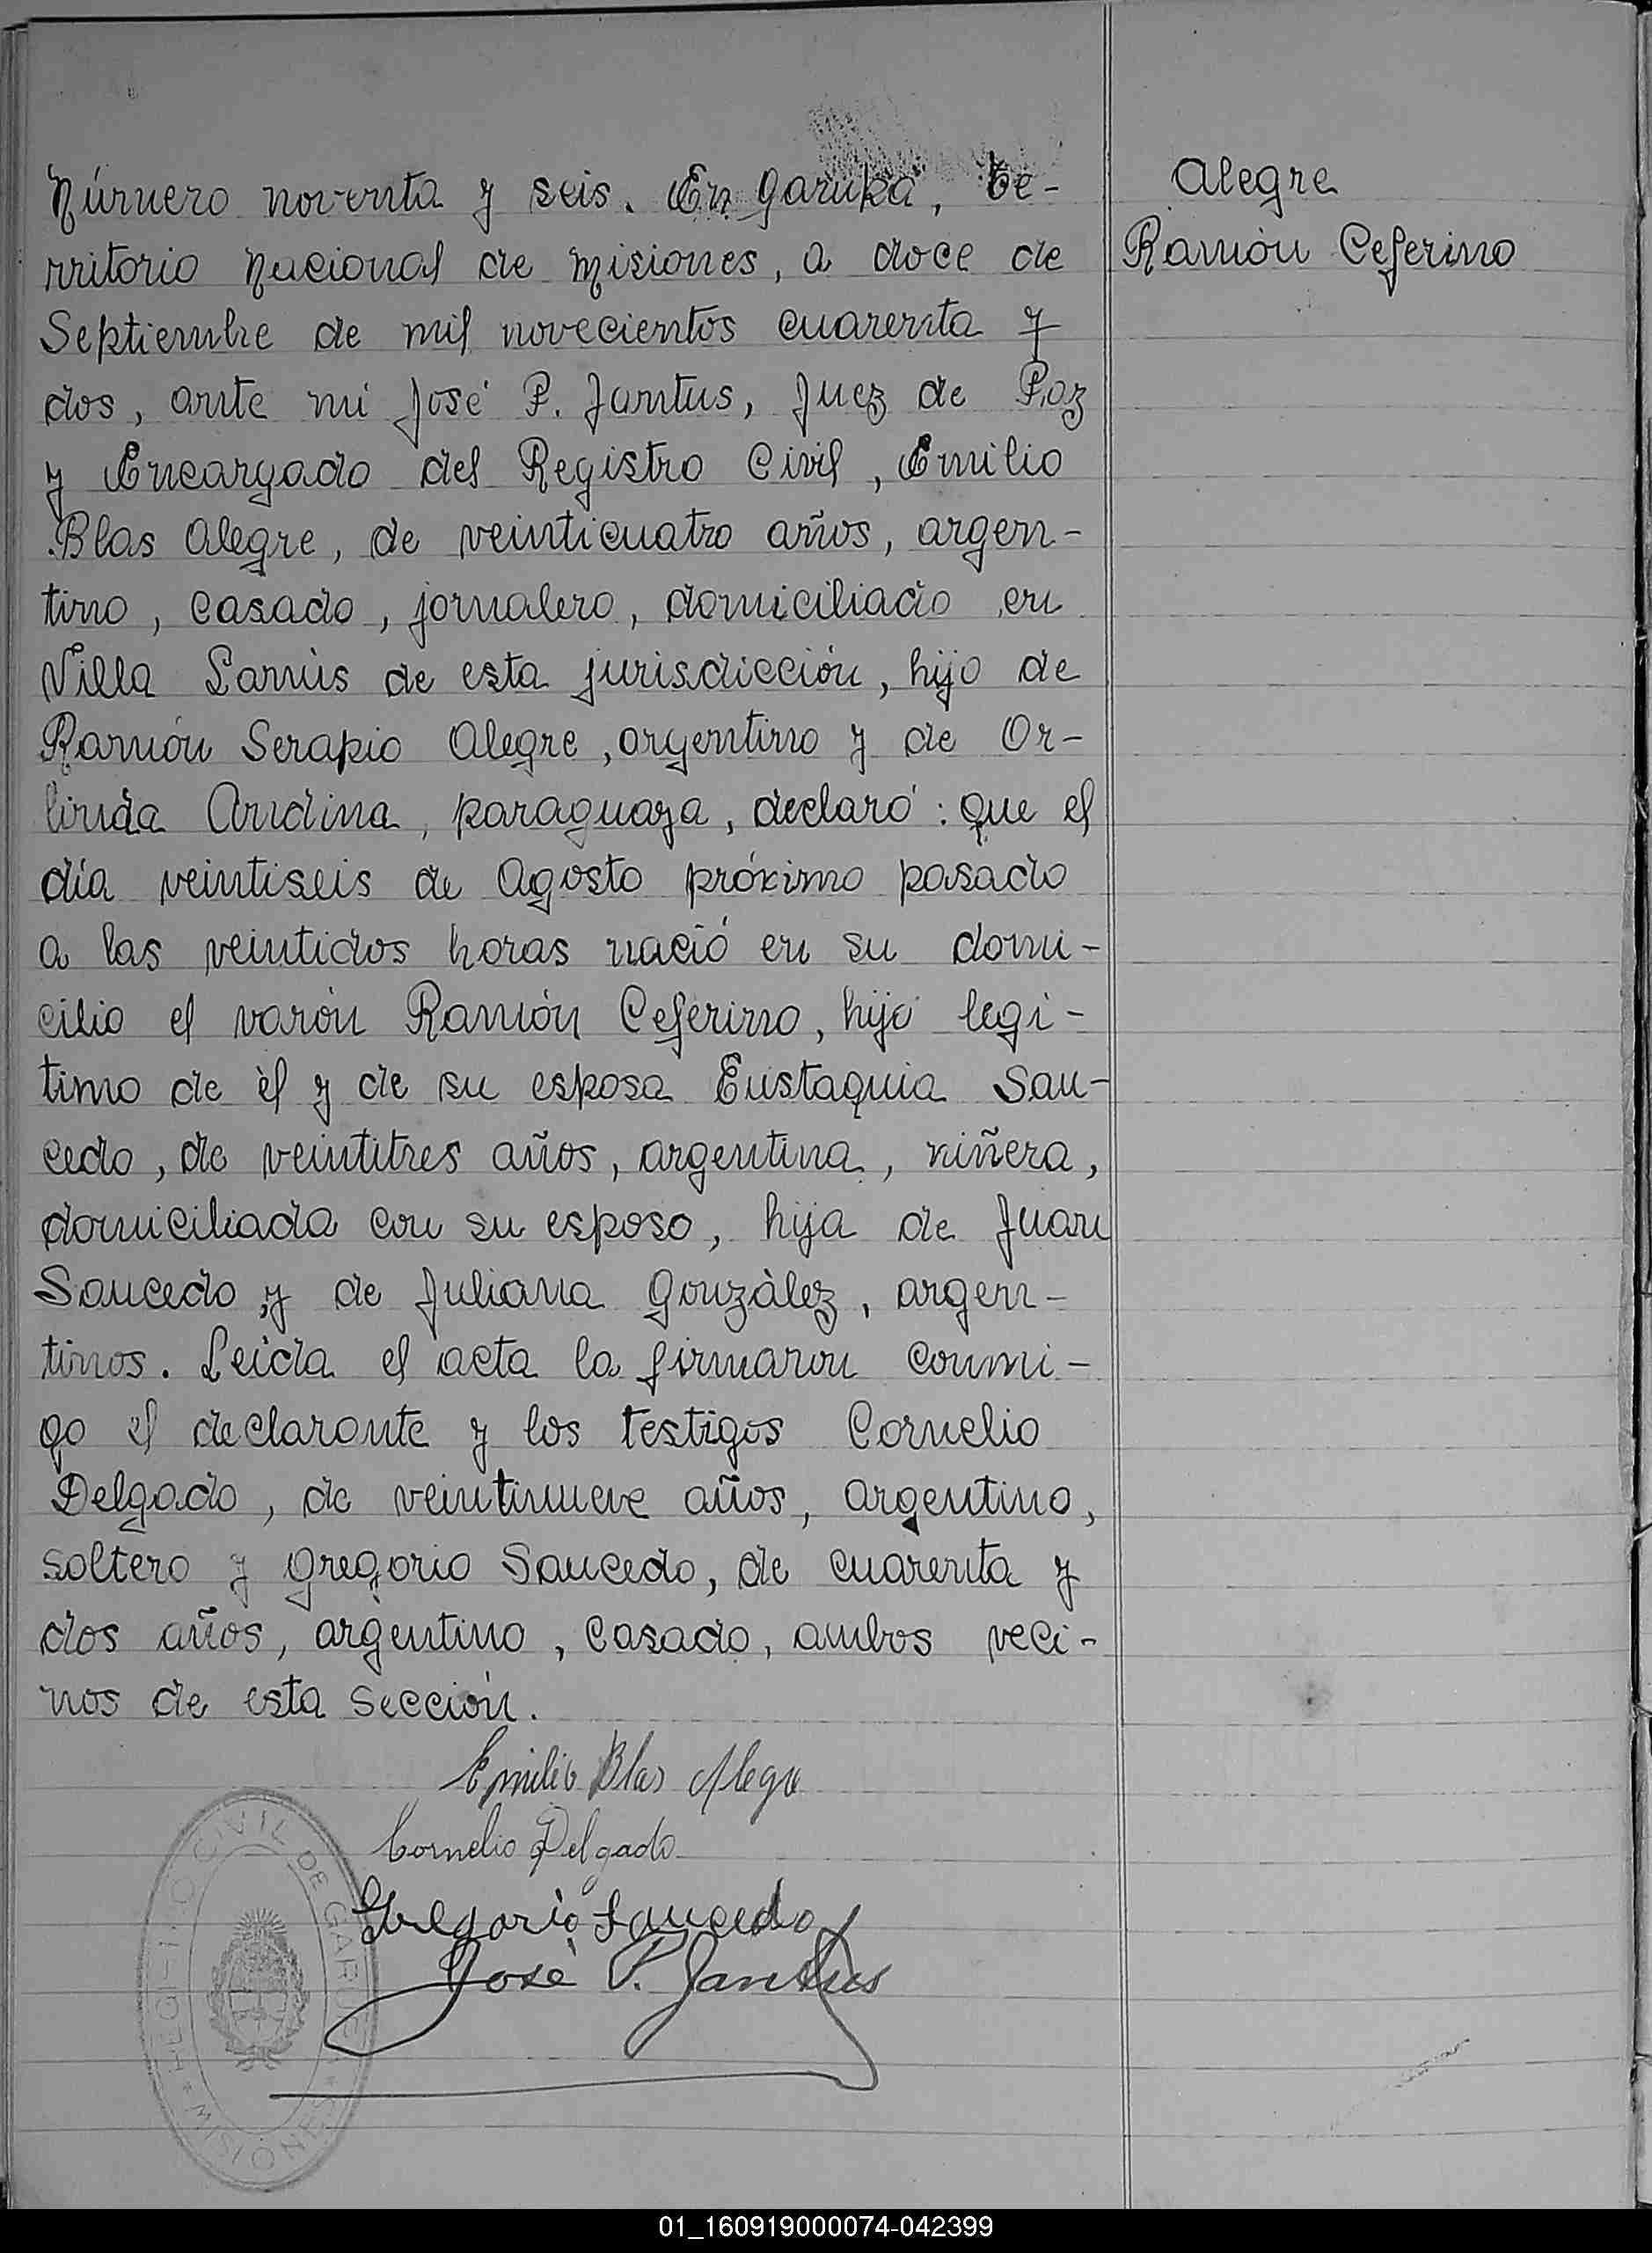 Alegre
Ramón Ceferino
Número noventa y seis. En Garupá, te-
rritorio Nacional de Misiones, a doce de
Septiembre de mil novecientos cuarenta y
dos, ante mi José P. Jantus, Juez de Paz
y Encargado del Registro Civil, Emilio
Blas Alegre, de veinticuatro años, argen-
tino, casado, jornalero, domiciliado en
Villa Lanús de esta jurisdicción, hijo de
Ramón Serapio Alegre, argentino y de Or-
linda Andina, paraguaya, declaró: que el
día veintiseis de Agosto próximo pasado
a las veintidos horas nació en su domi-
cilio el varón Ramón Ceferino, hijo legi-
timo de èl y de su esposa Eustaquia Sau-
cedo, de veintitres años, argentina, niñera,
domiciliada con su esposo, hija de Juan
Saucedo y de Juliana Gonzàlez, argen-
tinos. Leida el acta la firmaron conmi-
go el declarante y los testigos Cornelio
Delgado, de veintinueve años, argentino,
soltero y Gregorio Saucedo, de cuarenta y
dos años, argentino, casado, ambos veci-
nos de esta sección.
Emilio Blas Alegre
Cornelio Delgado
Gregorio Saucedo
José P. Jantus
CIVIL DE GARUPA
* MISIONES *
01_160919000074-042399